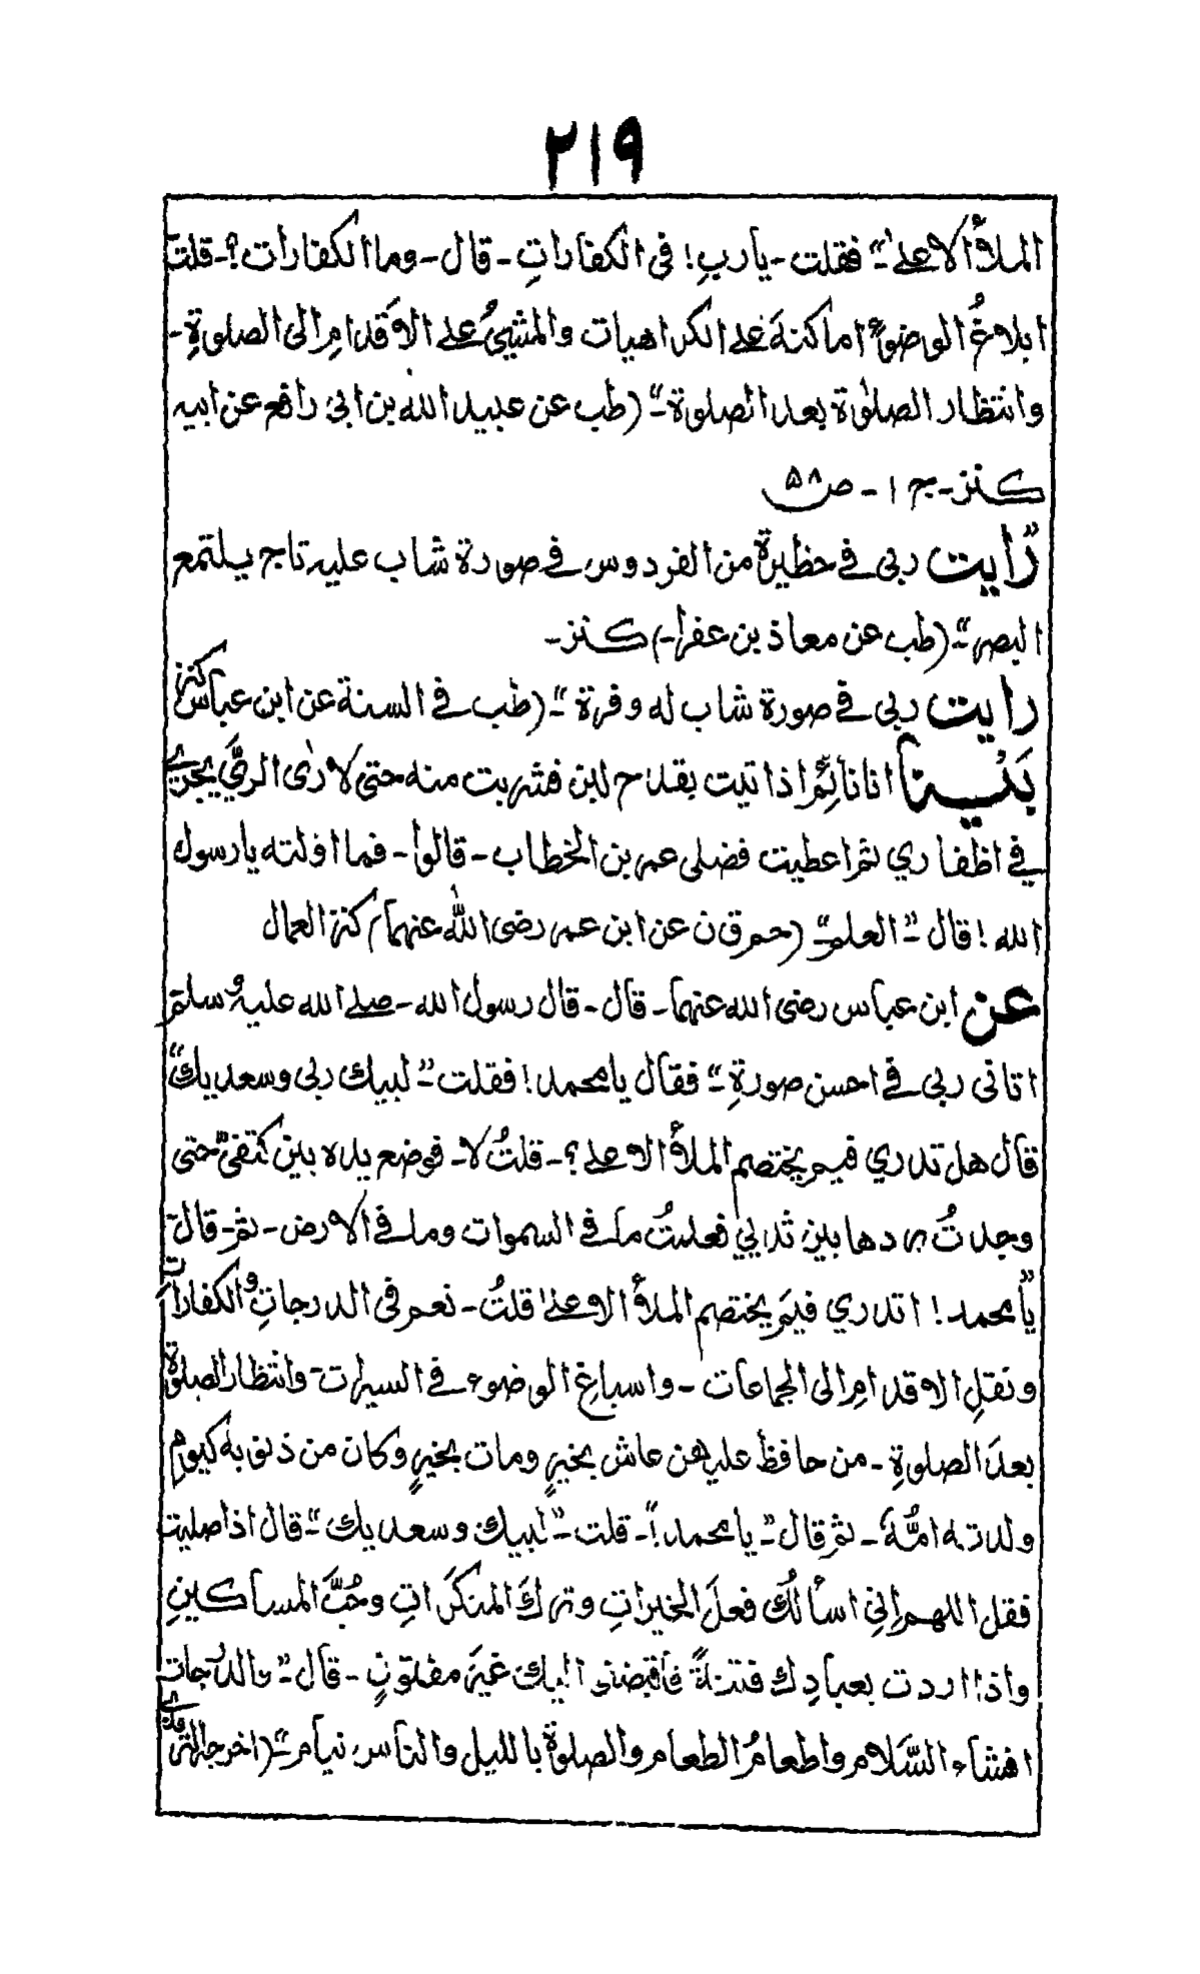 ٢١٩
الملأ الاعلىٰ" فقلت - يا ربِ! فى الكفاراتِ - قال - وما الكفارات؟ - قلت
ابلاغُ الوضوءِ اماكنهَ على الكراهيات والمشيُ على الاَقدامِ الى الصلوةِ -
وانتظار الصلوٰة بعد الصلوة" - (طب عن عبيد الله بن ابى رافع عن ابيه
كنز - ج ١ - ص ۵٨
"رايت ربى فى حظيرة من الفردوس فى صورة شاب عليه تاج يلتمع
البصر" - (طب عن معاذ بن عفرا -) كنز -
رايت ربى فى صورة شاب له وفرة" - (طب فى السنة عن ابن عباس كنز
بَيْنا انا نائِم اذا تيت بقدح لبن فشربت منه حتى لا رٰى الريَّ يجرى
فى اظفاري ثم اعطيت فضلى عمر بن الخطاب - قالوا - فما اولته يا رسول
الله! قال - "العلم" - (حم ق ن عن ابن عمر رضى الله عنهما) كنز العمال
عن ابن عباس رضى الله عنهما - قال - قال رسول الله - صلى الله عليه وسلم
اتانى ربى فى احسن صورةِ" - فقال يا محمد! فقلت - "لبيك ربى وسعديك"
قال هل تدري فيم يختصم الملأ الاعلى؟ - قلتُ لا - فوضع يده بين كتفىَّ حتى
وجدتُ بردها بين ثدييَ فعلمتُ ما فى السموات وما فى الارض - ثم - قال -
"يا محمد! اتدري فيمَ يختصم الملأ الاعلىٰ قلتُ - نعم فى الدرجاتِ والكفارات
ونقلِ الاقدامِ الى الجماعات - واسباغِ الوضوء فى السبرات - وانتظار الصلوة
بعدَ الصلوةِ - من حافظ عليهن عاش بخيرٍ ومات بخيرٍ وكان من ذنوبه كيومِ
ولدته امُّهُ - ثم قال - "يا محمد!" - قلت - "لبيك وسعديك" - قال اذا صليت
فقل اللهم إنِي اسألُك فعلَ الخيراتِ وتركَ المنكَراتِ وحُبَّ المساكينِ
واذا اردت بعبادِك فتنةً فاقبضنى اليك غيرَ مفتونٍ - قال - "والدرجات
افشاء السَّلام واطعامُ الطعام والصلوة بالليل والناس نيام" - (اخرجه الترمذى